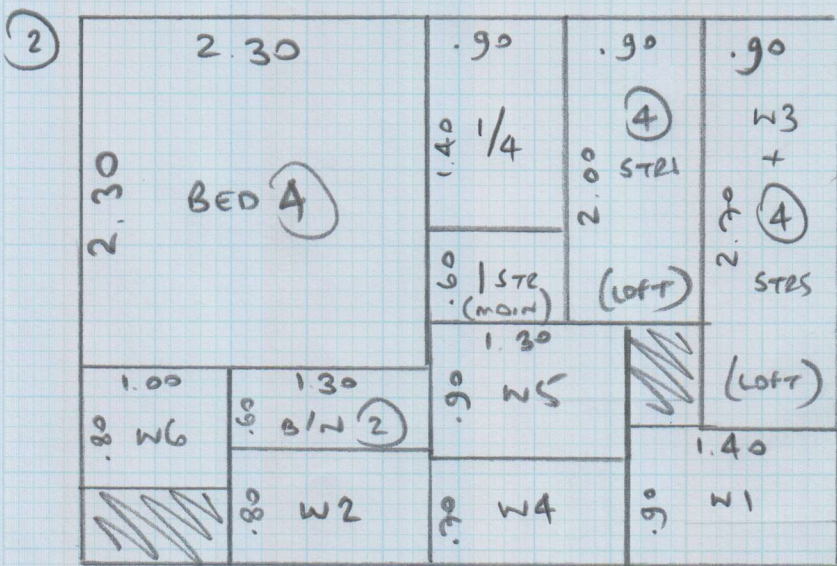 2
2.30
2.30
BED 4
.90
1.40
1/4
.60
1 STR
(MAIN)
.90
2.00
4
STRS
(LOFT)
.90
W3
+
4
2.70
STRS
(LOFT)
1.00
.80
W6
1.30
.60
B/N 2
.80
W2
1.30
.90
W5
.70
W4
1.40
.90
W1